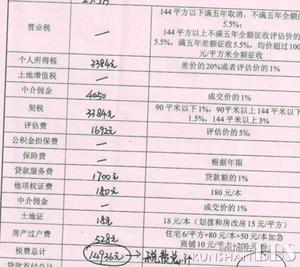 营业税 — 144平方以下满五年取消，不满五年全额
5.5%；
144平方以上不满五年全额征收评估价的
5.5%，满五年差额征收5.5%，均价超过100
元/平方米全额征收
个人所得税 3384元 差价的20%或者评估价的1%
土地增值税 —
中介佣金 4050 成交价的1%
契税 3384元 90平米以下1%，90平米以上144平米以下
1.5%，144平米以上3%
评估费 1692元 评估价的5‰
公积金担保费 —
保险费 — 根据年限
贷款服务费 1700元 贷款额的1%
他项权证费 180元 180元/本
中介佣金 — 成交价的1%
土地证 18元 18元/本（划拨和房改房15元/平方）
房产过户费 528元 住宅6/平方+80元/本+50元/本加急
商铺10元/平方+200元
税费总计 14936元 税费总计
KUNSHAN BBS